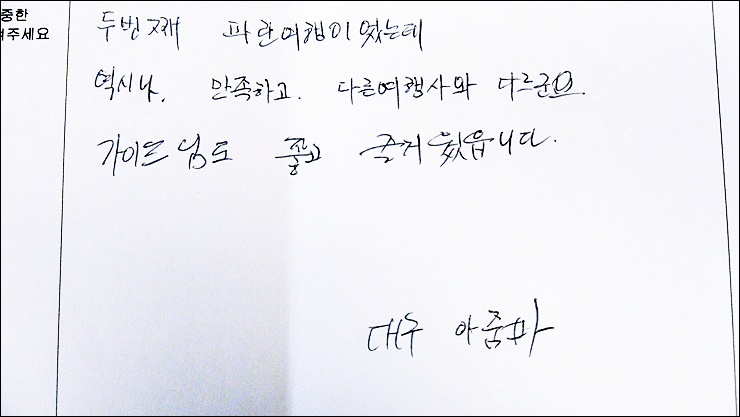 중한
겨주세요
두번째 파란여행이었는데
역시나. 만족하고. 다른여행사와 다르군요.
가이드님도 좋고 즐거웠읍니다.
대구 아줌마